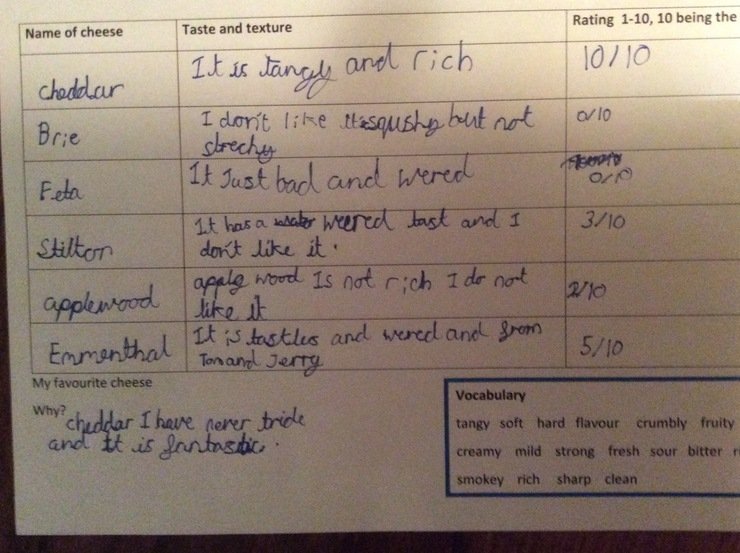 Name of cheese Taste and texture Rating 1-10, 10 being the
cheddar It is tangy and rich 10/10
Brie I don't like it squshy but not 0/10
strechy
Feta It Just bad and wered 0/10
Stilton It has a weered tast and I 3/10
don't like it.
applewood apple wood Is not rich I do not 2/10
like it
Emmenthal It is tastles and wered and from 5/10
Tom and Jerry
My favourite cheese
Why? cheddar I have never tride
and It is fantastic.
Vocabulary
tangy soft hard flavour crumbly fruity
creamy mild strong fresh sour bitter
smokey rich sharp clean